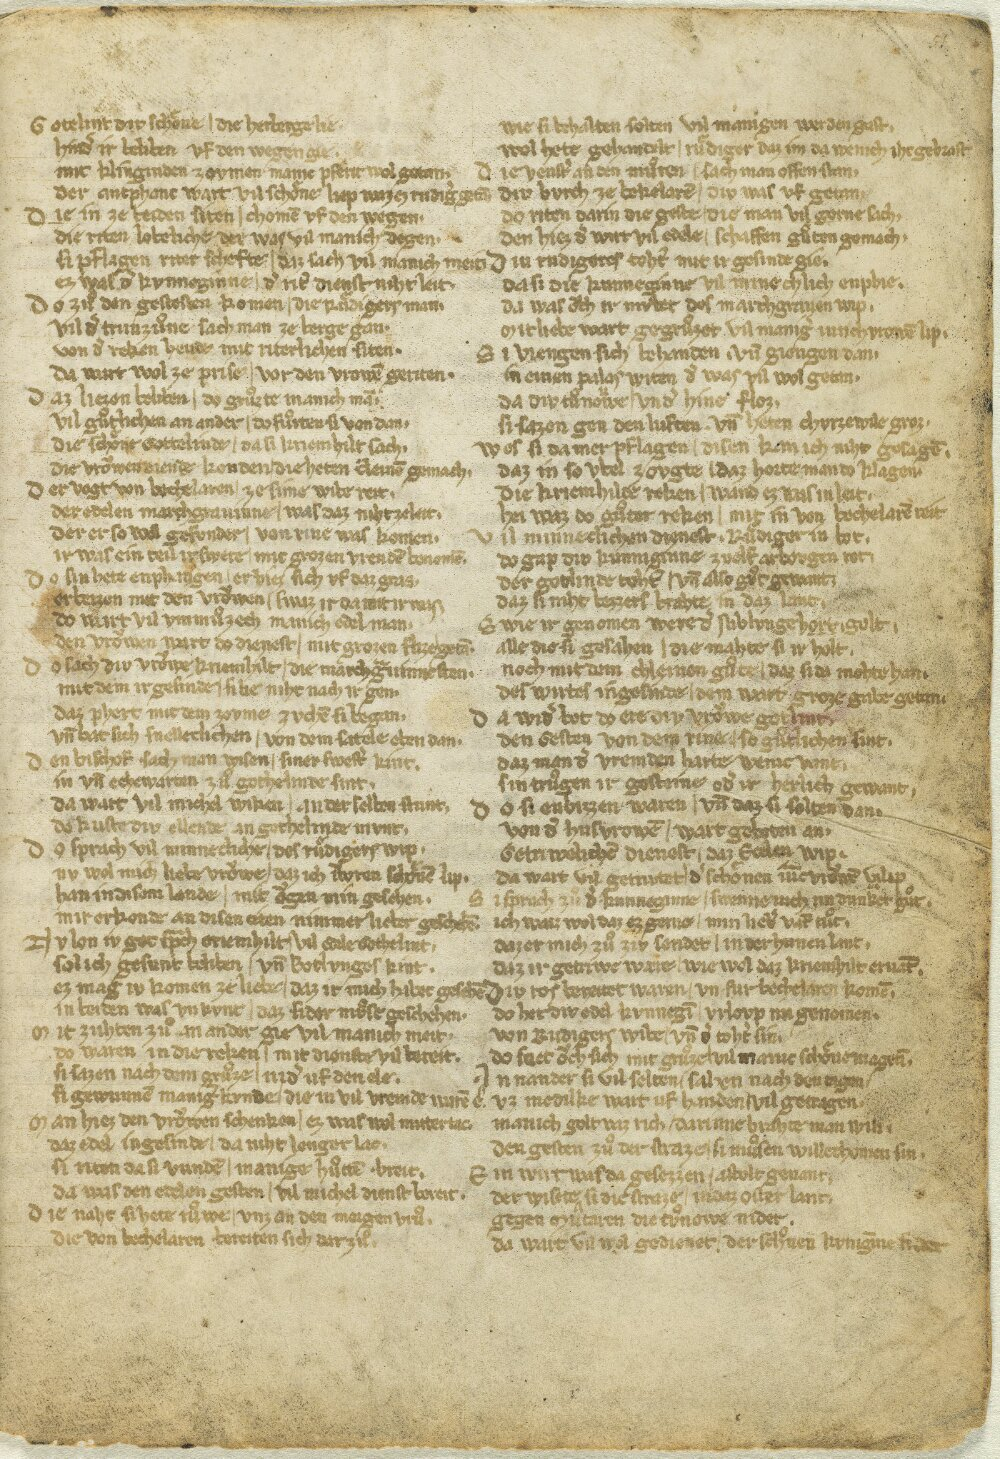 Gotelint div schŏne / die herberge lie.
hind͛ ir beliben / vf den wegen gie.
mit klingenden zovmen / manic pferit wol getan.
der antphanc wart vil schŏne / liep waz ez rvdig͛ getā
Die in ze beiden siten / chomē vf den wegen.
die riten lobeliche / der was vil manich degen.
si pflagen riterschefte / daz sach vil manich meit.
ez was d͛ kvneginne / d͛ rit͛ dienst niht leit.
Do zv̊ den gesten komen / die Rv̊digers man.
vil d͛ trvnzv̊ne / sach man ze berge gan.
von d͛ reken hende / mit riterlichen siten.
da wart wol ze prise / vor den vrowē geriten.
Daz liezen beliben / do grv̊zte manich man.
vil gv̊tlichen an ander / do fv̊rten si von dan.
die schŏne Gotelinde / da si kriemhilt sach.
die vrŏwen dienen konden / die heten cleinē gemach.
Der vogt von bechelaren / ze sime wibe reit.
der edelen marchgravinne / was daz niht ze leit.
der er so wol gesvnder / von rine was komen.
ir was ein teil ir swere / mit grozen vreuden benomē.
Do sin hete enphangen / er hiez sich vf daz gras.
erbeizen mit den vrŏwen / swaz ir da mit ir was
do wart vil vnmv̊zech / manich edel man.
den vrŏwen wart do dienest / mit grozen flize getā.
Do sach div vrŏwe kriemhilt / die marchgravinne sten.
mit dem ir gesinde / si lie niht nach ir gen.
daz phert mit dem zovme / zvchē si began.
vn̄ bat sich snelleclichen / von dem satele heben dan.
Den bischof sach man wisen / siner swest͛ kint.
in vn̄ eckewarten / zv̊ gothelinde sint.
da wart vil michel wichen / an der selben stunt.
do kuste div ellende / an gothelinde mvnt.
Do sprach vil minneclichē / des rv̊digers wip.
nv wol mich liebe vrŏwe / daz ich iwren schŏnē lip.
han in disem lande / mit ŏgen min gesehen.
mir enkonde an disen ziten / nimmer lieber geschehē.
Nv lon iv got sprch͛ criemhilt / vil edele Gothelint.
sol ich gesunt beliben / vn̄ Botlvnges kint.
ez mag iv komen ze liebe / daz ir mich habet gesehē
in beiden was vnkvnt / daz sider mv̊se geschehen.
Mit zuhten zv̊ an ander / gie vil manich meit.
do waren in die reken / mit dienste vil bereit.
si sazen nach dem grv̊ze / nid͛ uf den cle.
si gewunnē manig͛ kvnde / die in vil vremde warē e.
Man hiez den vrŏwen schenken / ez was wol mitter tac
daz edel ingesinde / da niht lenger lac.
si riten da si vunden / manige hv̊ttē breit.
da was den edelen gesten / vil michel dienst bereit.
Die naht si hete rv̊we / vnz an den morgen vrv̊.
die von bechelaren bereiten sich dar zv̊.
wie si behalten solten / vil manigen werden gast.
wol hete gehandelt / rv̊diger daz im da wenich iht gebrast
Die venst͛ an den mv̊ren / sach man offen stan.
div bvrch ze bechelarē / div was vf getan.
do riten darin die geste / die man vil gerne sach.
den hiez d͛ wirt vil edele / schaffen gv̊ten gemach.
Div rvdigeres toht͛ / mit ir gesinde gie.
da si die kunneginne / vil minneclich enphie.
da was ŏch ir mv̊ter / des marchgraven wip.
mit liebe wart gegrv̊zet / vil manig͛ iunchvrowē lip.
Si viengen sich behanden / vn̄ giengen dan.
in einen palas witen / d͛ was vil wol getan.
da div tv̊nowe / vnd͛ hine floz.
si sazen gen den luften / vn̄ heten chvrzewile groz.
Wes si da mer pflagen / disen kan ich niht gesagē.
daz in so vbel zovgte / daz horte man do klagen
die kriemhilde reken / wand ez was in leit.
hei waz do gv̊ter reken / mit in von bechelarē reit
Vil minneclichen dienest / Rv̊diger in bot.
do gap div kunniginne / zwelf armbovgen rot.
der gotelinde toht͛ / vn̄ also gv̊t gewant.
daz si niht bezzers brahte / in daz lant.
Swie ir genomen were / d͛ niblvnge hort golt.
alle die si gesahen / die mahte si ir holt.
noch mit dem chleinen gv̊te / daz si do mohte han.
des wirtes ingesinde / dem wart groze gabe getan.
Da wid͛ bot do ere / div vrŏwe gotlint.
den Gesten von dem rine / so gv̊tlichen sint.
daz man d͛ vremden / harte wenic vant.
sin trv̊gen ir gesteine / od͛ ir herlich gewant.
Do si enbizzen waren / vn̄ daz si solten dan.
von d͛ husvrowē / wart geboten an.
Getriwelichen dienest / daz Ecelen wip.
da wart vil getriutet / d͛ schŏnen iūcvrowē lip.
Si sprach zv̊ d͛ kunneginne / swenne iuch nu dunket gv̊t.
ich waiz wol daz ez gerne / min lieb͛ vat͛ tv̊t.
daz er mich zv̊ ziv sendet / in der hiunen lant.
daz ir getriwe were / wie wol daz kriemhilt ervant.
Div ros bereitet waren / vn̄ fur bechelaren komē.
do het div edel kvnegī / vrlovp nu genomen.
von Rudigers wibe / vn̄ d͛ toht͛ sin.
do sciet ŏch sich mit grv̊ze / vil manic schŏne magedī.
An nander si vil selten / sahen nach den tagen /
vz medilke wart uf handen / vil getragen.
manich golt vaz rich / dar inne brahte man win.
den gesten zv̊ der straze / si mv̊sen willechomen sin.
Ein wirt was da gesezzen / astolt genant.
der wiste si die straze / in daz oster lant.
gegen mv̊taren die tv̊nowe nider.
da wart vil wol gedienet / der schŏnen kvniginne sider